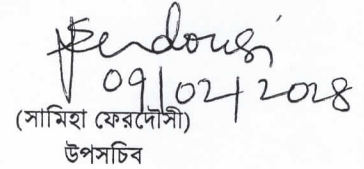 Ferdousi
09/02/2028
(সামিহা ফেরদৌসী)
উপসচিব